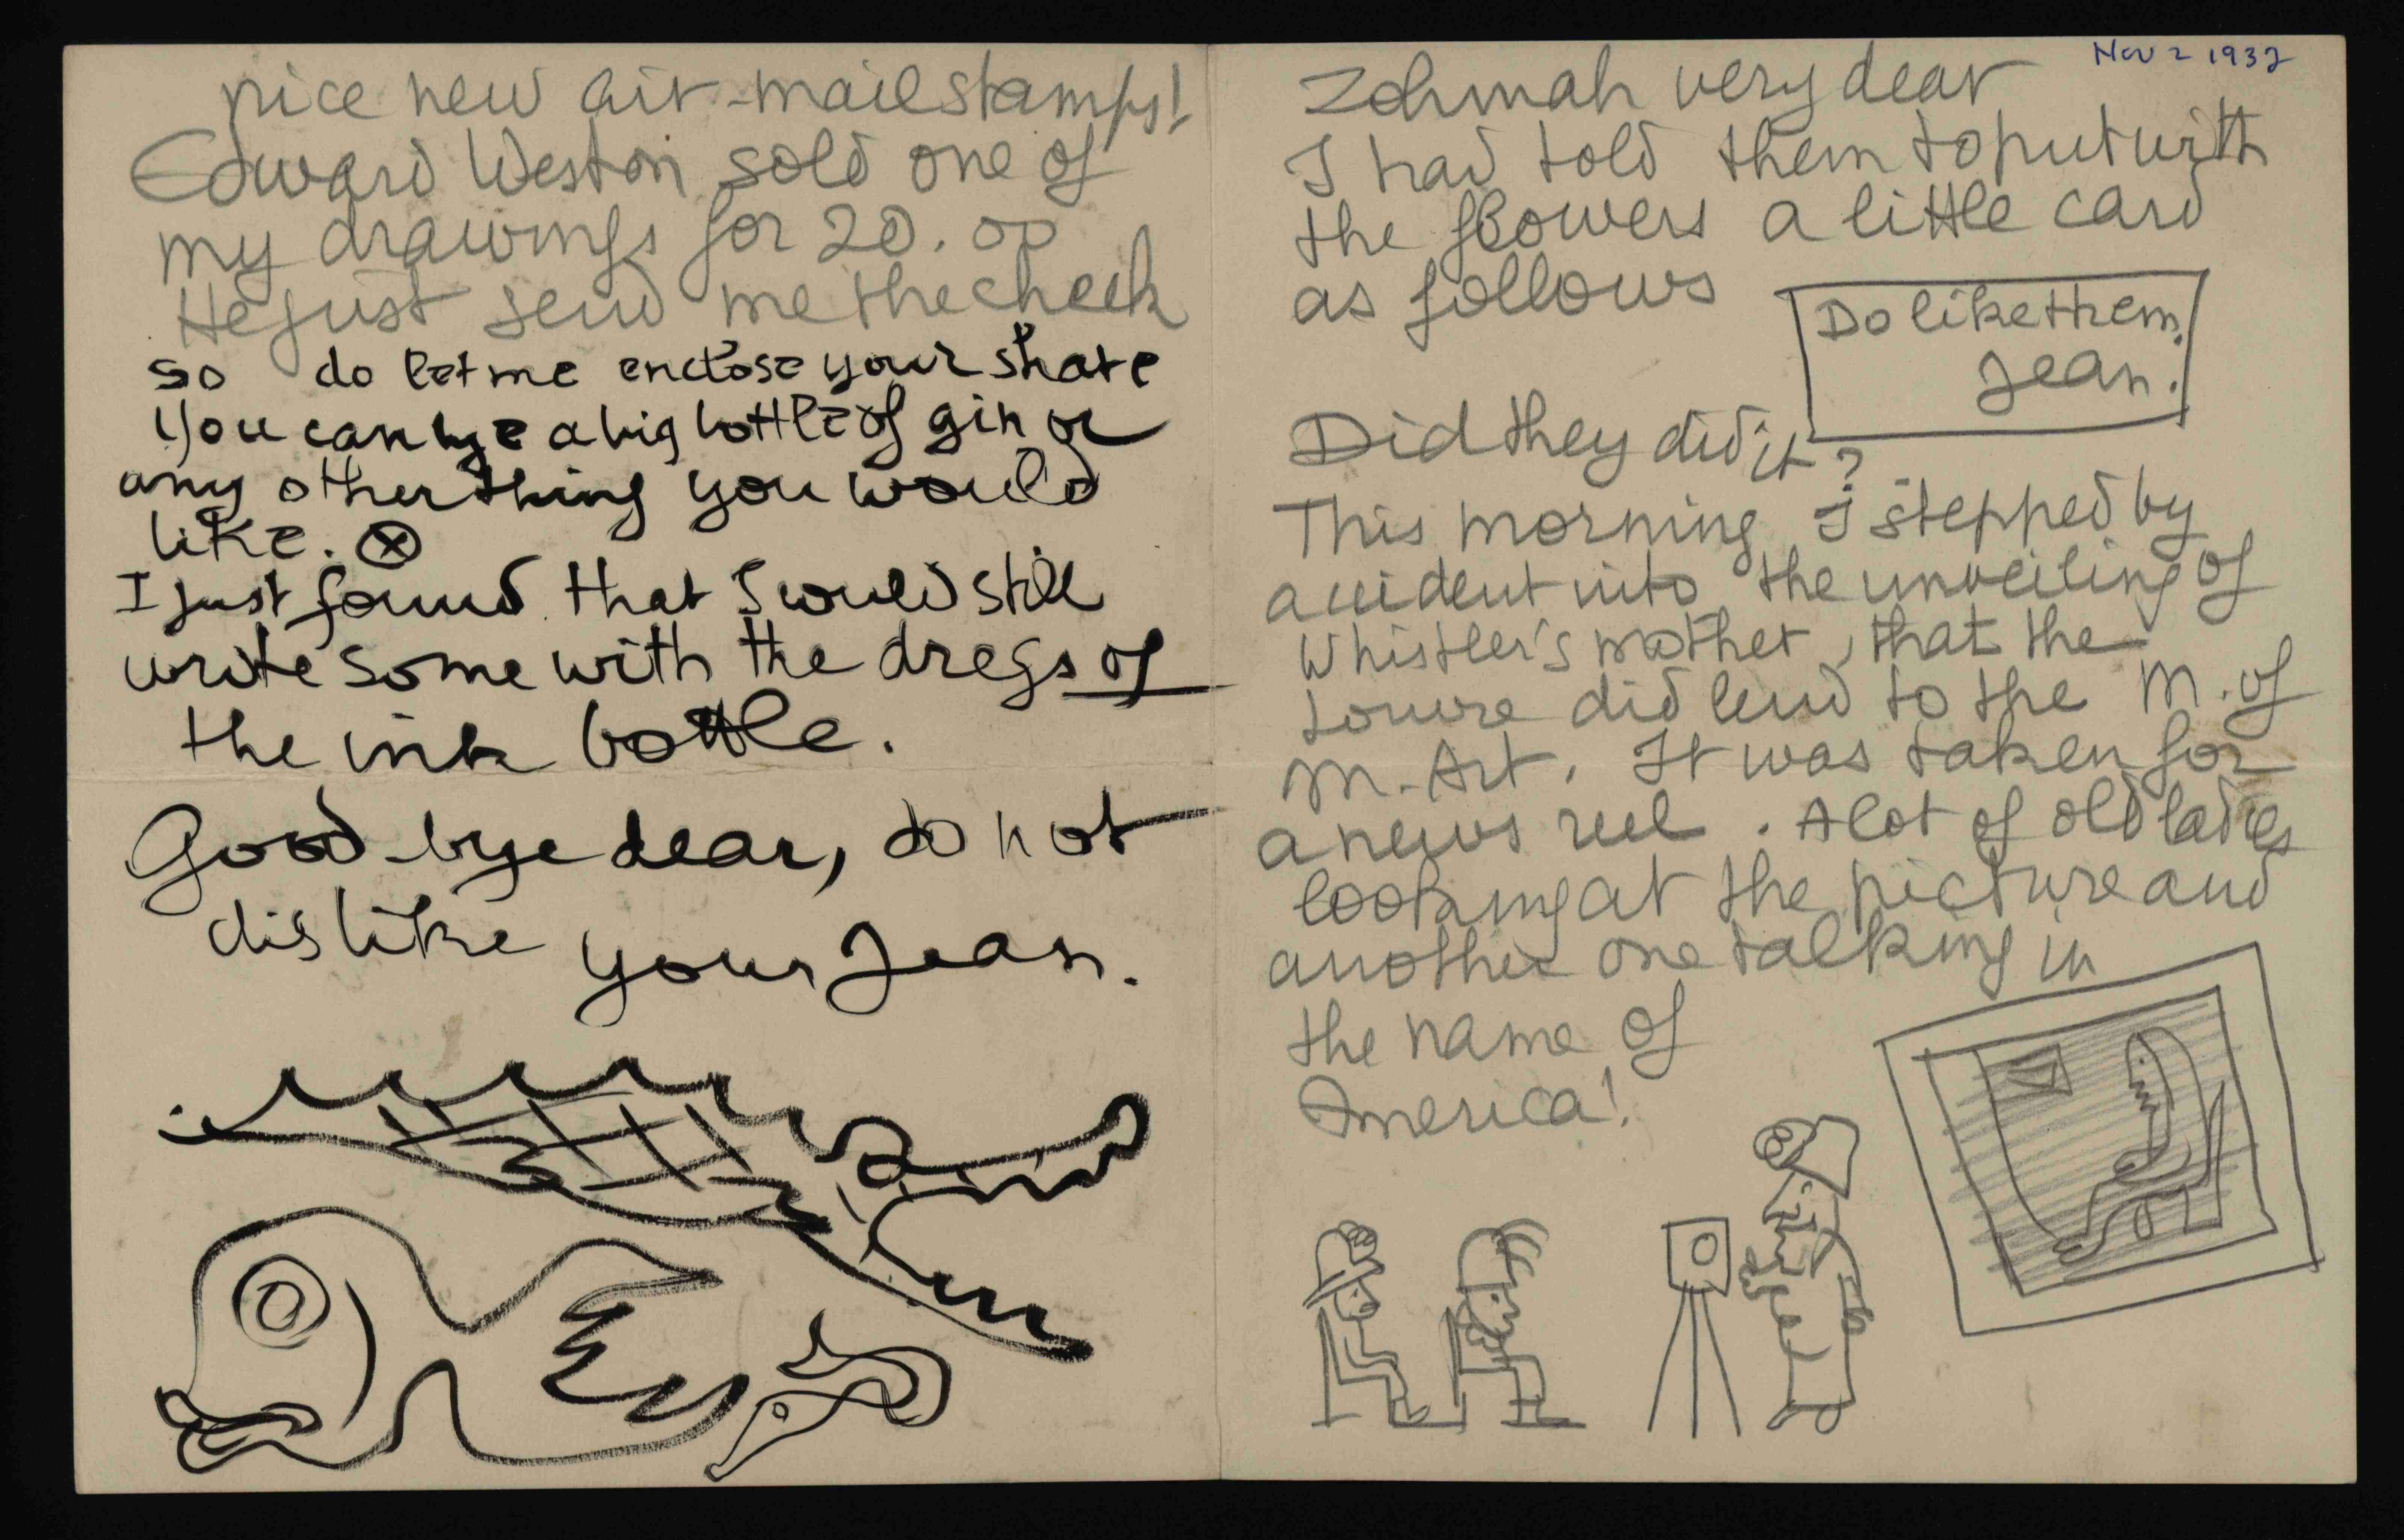 nice new air-mail stamps!
Edward Weston sold one of
my drawings for 20.00
He just send me the check
so do let me enclose your share
You can bye a big bottle of gin or
any other thing you would
like. ⊗
I just found that I would still
write some with the dregs of
the ink bottle.
Good-bye dear, do not
dislike your Jean.
Nov 2 1932
Zohmah very dear
I had told them to put with
the flowers a little card
as follows
Do like them.
Jean.
Did they did it?
This morning I stepped by
accident into the unveiling of
Whistler's mother, that the
Louvre did lend to the M. of
M. Art. It was taken for
a news reel. A lot of old ladies
looking at the picture and
another one talking in
the name of
America!